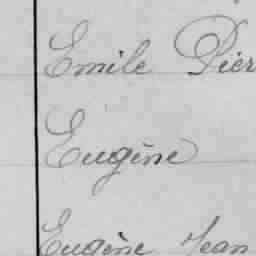 Emile Pier
Eugène
Eugène Jean